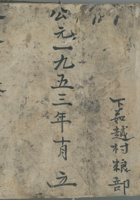 下茹越村粮部
公元一九五三年十月 立